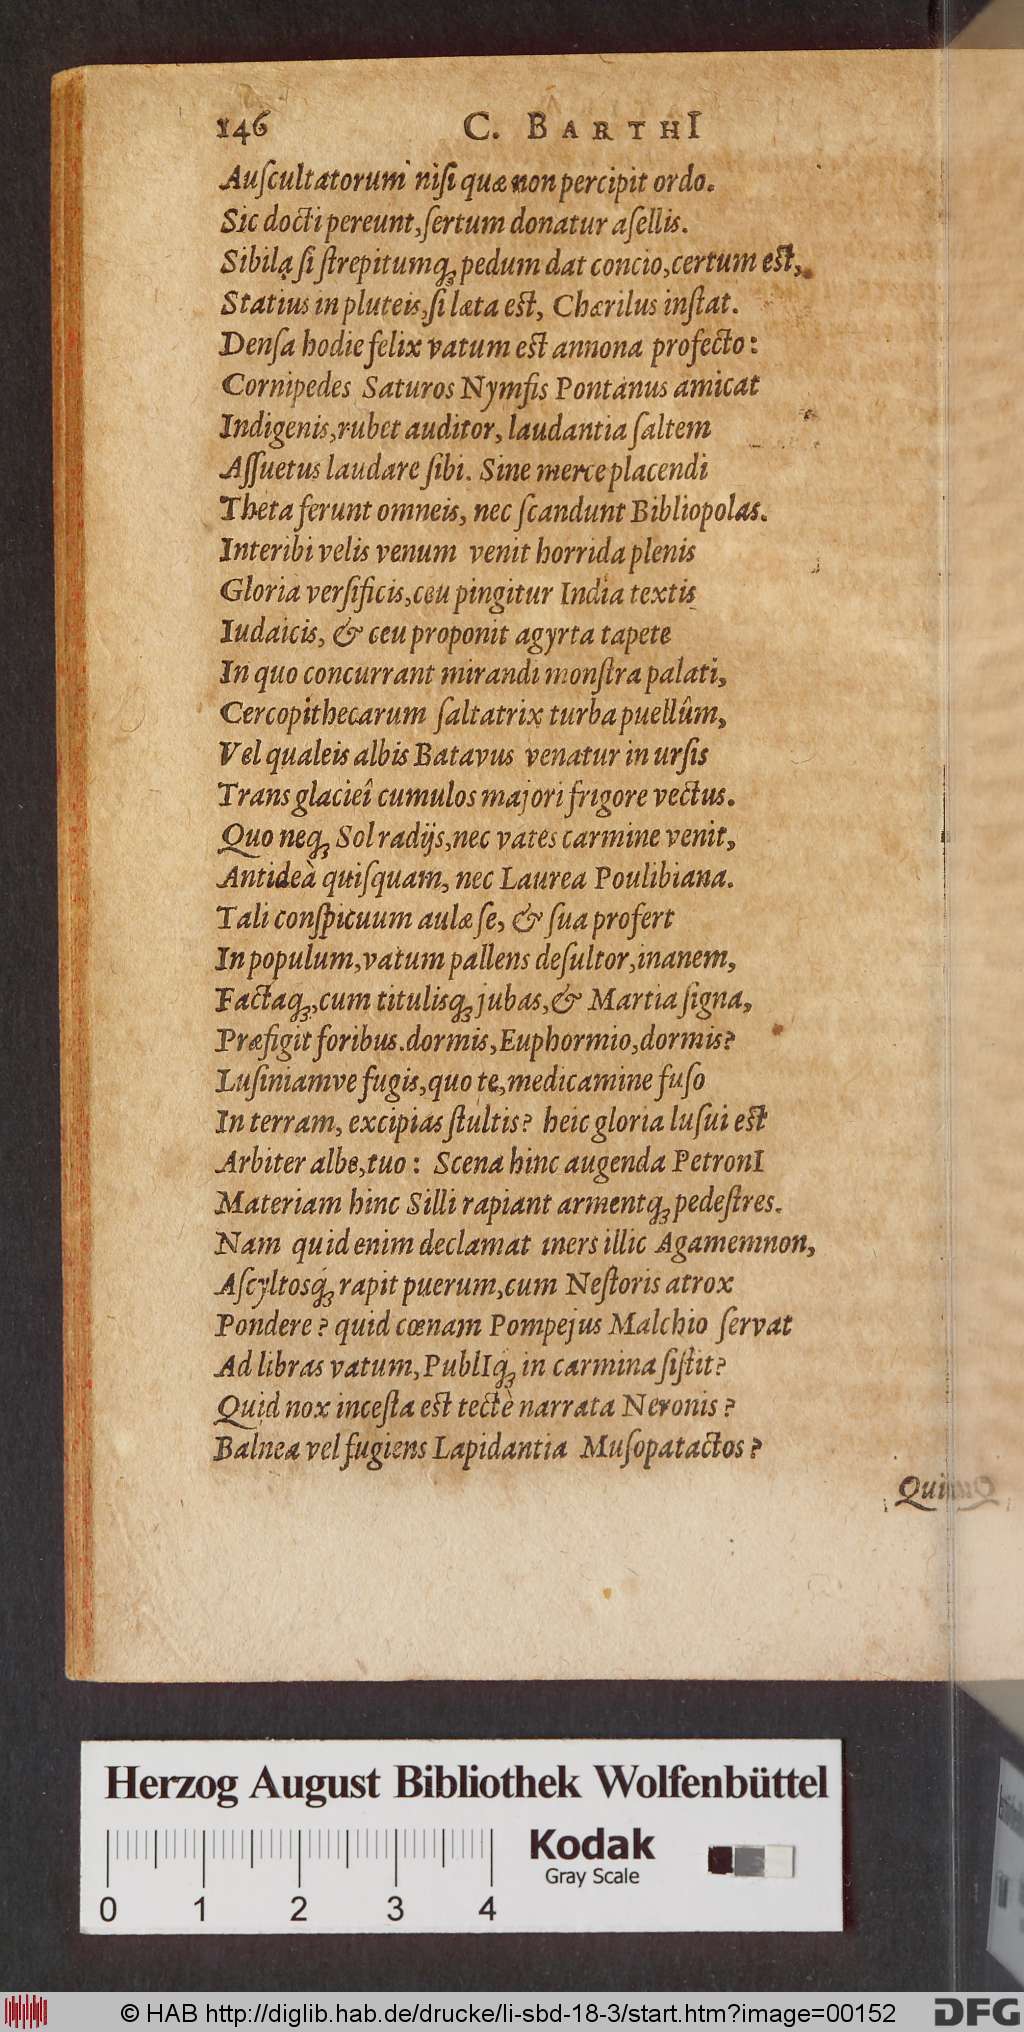 146 C. BARTHI
Auſcultatorum niſi quæ non percipit ordo.
Sic docti pereunt,ſertum donatur aſellis.
Sibila ſi ſtrepitumq́ꝫ pedum dat concio,certum eſt,
Statius in pluteis,ſi læta eſt, Chærilus inſtat.
Denſa hodie felix vatum eſt annona profecto:
Cornipedes Saturos Nymfis Pontanus amicat
Indigenis,rubet auditor, laudantia ſaltem
Aſſuetus laudare ſibi. Sine merce placendi
Theta ferunt omneis, nec ſcandunt Bibliopolas.
Interibi velis venum venit horrida plenis
Gloria verſificis,ceu pingitur India textis
Iudaicis, & ceu proponit agyrta tapete
In quo concurrant mirandi monſtra palati,
Cercopithecarum ſaltatrix turba puellûm,
Vel qualeis albis Batavus venatur in urſis
Trans glacieî cumulos majori frigore vectus.
Quo neqꝫ Sol radijs,nec vates carmine venit,
Antideà quiſquam, nec Laurea Poulibiana.
Tali conſpicuum aulæ ſe, & ſua profert
In populum,vatum pallens deſultor,inanem,
Factaqꝫ,cum titulisqꝫ jubas,& Martia ſigna,
Præfigit foribus.dormis,Euphormio,dormis?
Luſiniamve fugis,quo te,medicamine fuſo
In terram, excipias ſtultis? heic gloria luſui eſt
Arbiter albe,tuo: Scena hinc augenda PetronI
Materiam hinc Silli rapiant armentqꝫ pedeſtres.
Nam quid enim declamat iners illic Agamemnon,
Aſcyltosq́ꝫ rapit puerum,cum Neſtoris atrox
Pondere? quid cœnam Pompejus Malchio ſervat
Ad libras vatum,PublIq́ꝫ in carmina ſiſtit?
Quid nox inceſta eſt tectè narrata Neronis?
Balnea vel fugiens Lapidantia Muſopatactos?
Herzog August Bibliothek Wolfenbüttel
Kodak
Gray Scale
0 1 2 3 4
© HAB http://diglib.hab.de/drucke/li-sbd-18-3/start.htm?image=00152
DFG